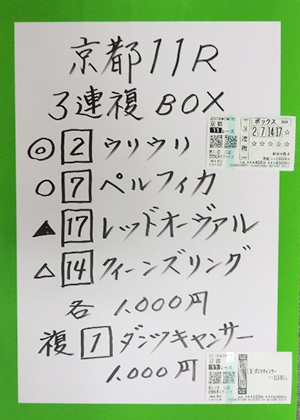 京都11R
3連複 BOX
◎ 2 ウリウリ
○ 7 ペルフィカ
▲ 17 レッドオーヴァル
△ 14 クィーンズリング
各 1,000円
複 1 ダンツキャンサー
1,000円
京都
11 レース
3連複
ボックス
2.7.14.17
☆☆☆☆☆
京都
11 レース
1 ダンツキャンサー